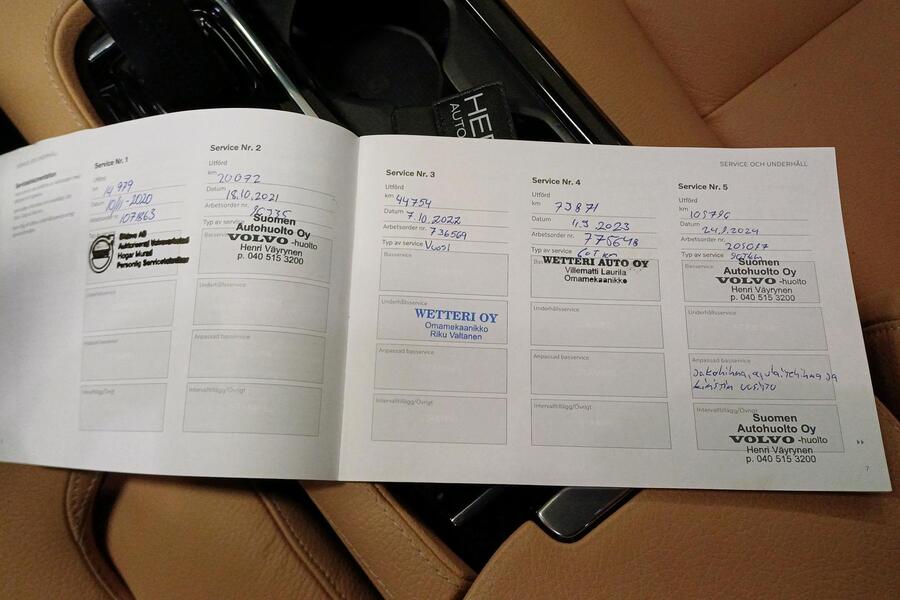 Service Nr. 1
Utförd
km 14 979
Datum 10/11-2020
1071863
Bilateral AB
Personlig Servicetekniker
Service Nr. 2
Utförd
km 20072
Datum 18.10.2021
Arbetsorder nr.
Typ av service
Basservice
Suomen
Autohuolto Oy
VOLVO -huolto
Henri Väyrynen
p. 040 515 3200
Underhållsservice
Anpassad basservice
Intervalltillägg/Övrigt
HE
AUTO
Service Nr. 3
Utförd
km 44754
Datum 7.10.2022
Arbetsorder nr. 736569
Typ av service Vuosi
Basservice
Underhållsservice
WETTERI OY
Omamekaanikko
Riku Valtanen
Anpassad basservice
Intervalltillägg/Övrigt
Service Nr. 4
Utförd
km 73871
Datum
Arbetsorder nr. 775648
Typ av service 60T km
WETTERI AUTO OY
Villematti Laurila
Omamekaanikko
Underhållsservice
Anpassad basservice
Intervalltillägg/Övrigt
SERVICE OCH UNDERHÅLL
Service Nr. 5
Utförd
km 105796
Datum
Arbetsorder nr.
Typ av service
Basservice
Suomen
Autohuolto Oy
VOLVO -huolto
Henri Väyrynen
p. 040 515 3200
Underhållsservice
Anpassad basservice
Jakohihna, apulaitehihna ja
kiristin uusittu
Intervalltillägg/Övrigt
Suomen
Autohuolto Oy
VOLVO -huolto
Henri Väyrynen
p. 040 515 3200
7